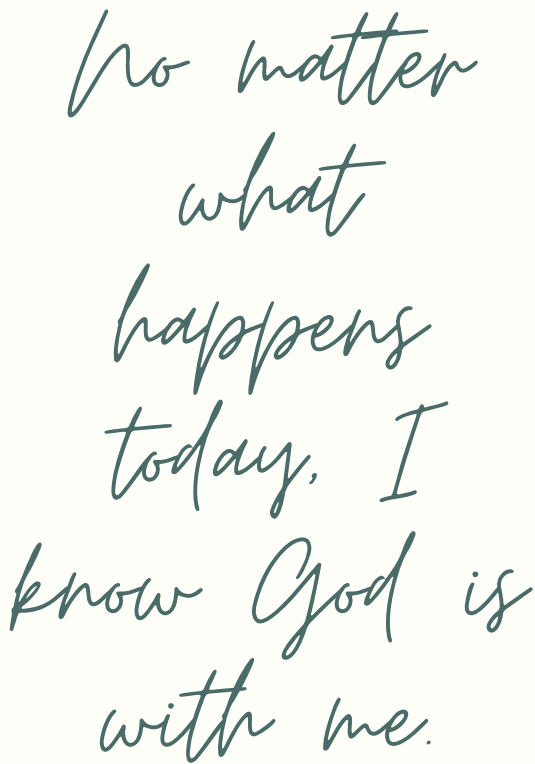 No matter
what
happens
today, I
know God is
with me.